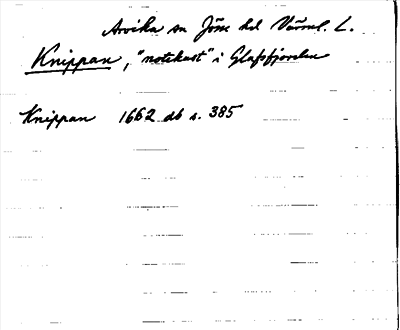 Arvika sn Jösse hd Värml. L.
Knippan, "notekast" i Glafsfjorden
Knippan 1662 db s. 385